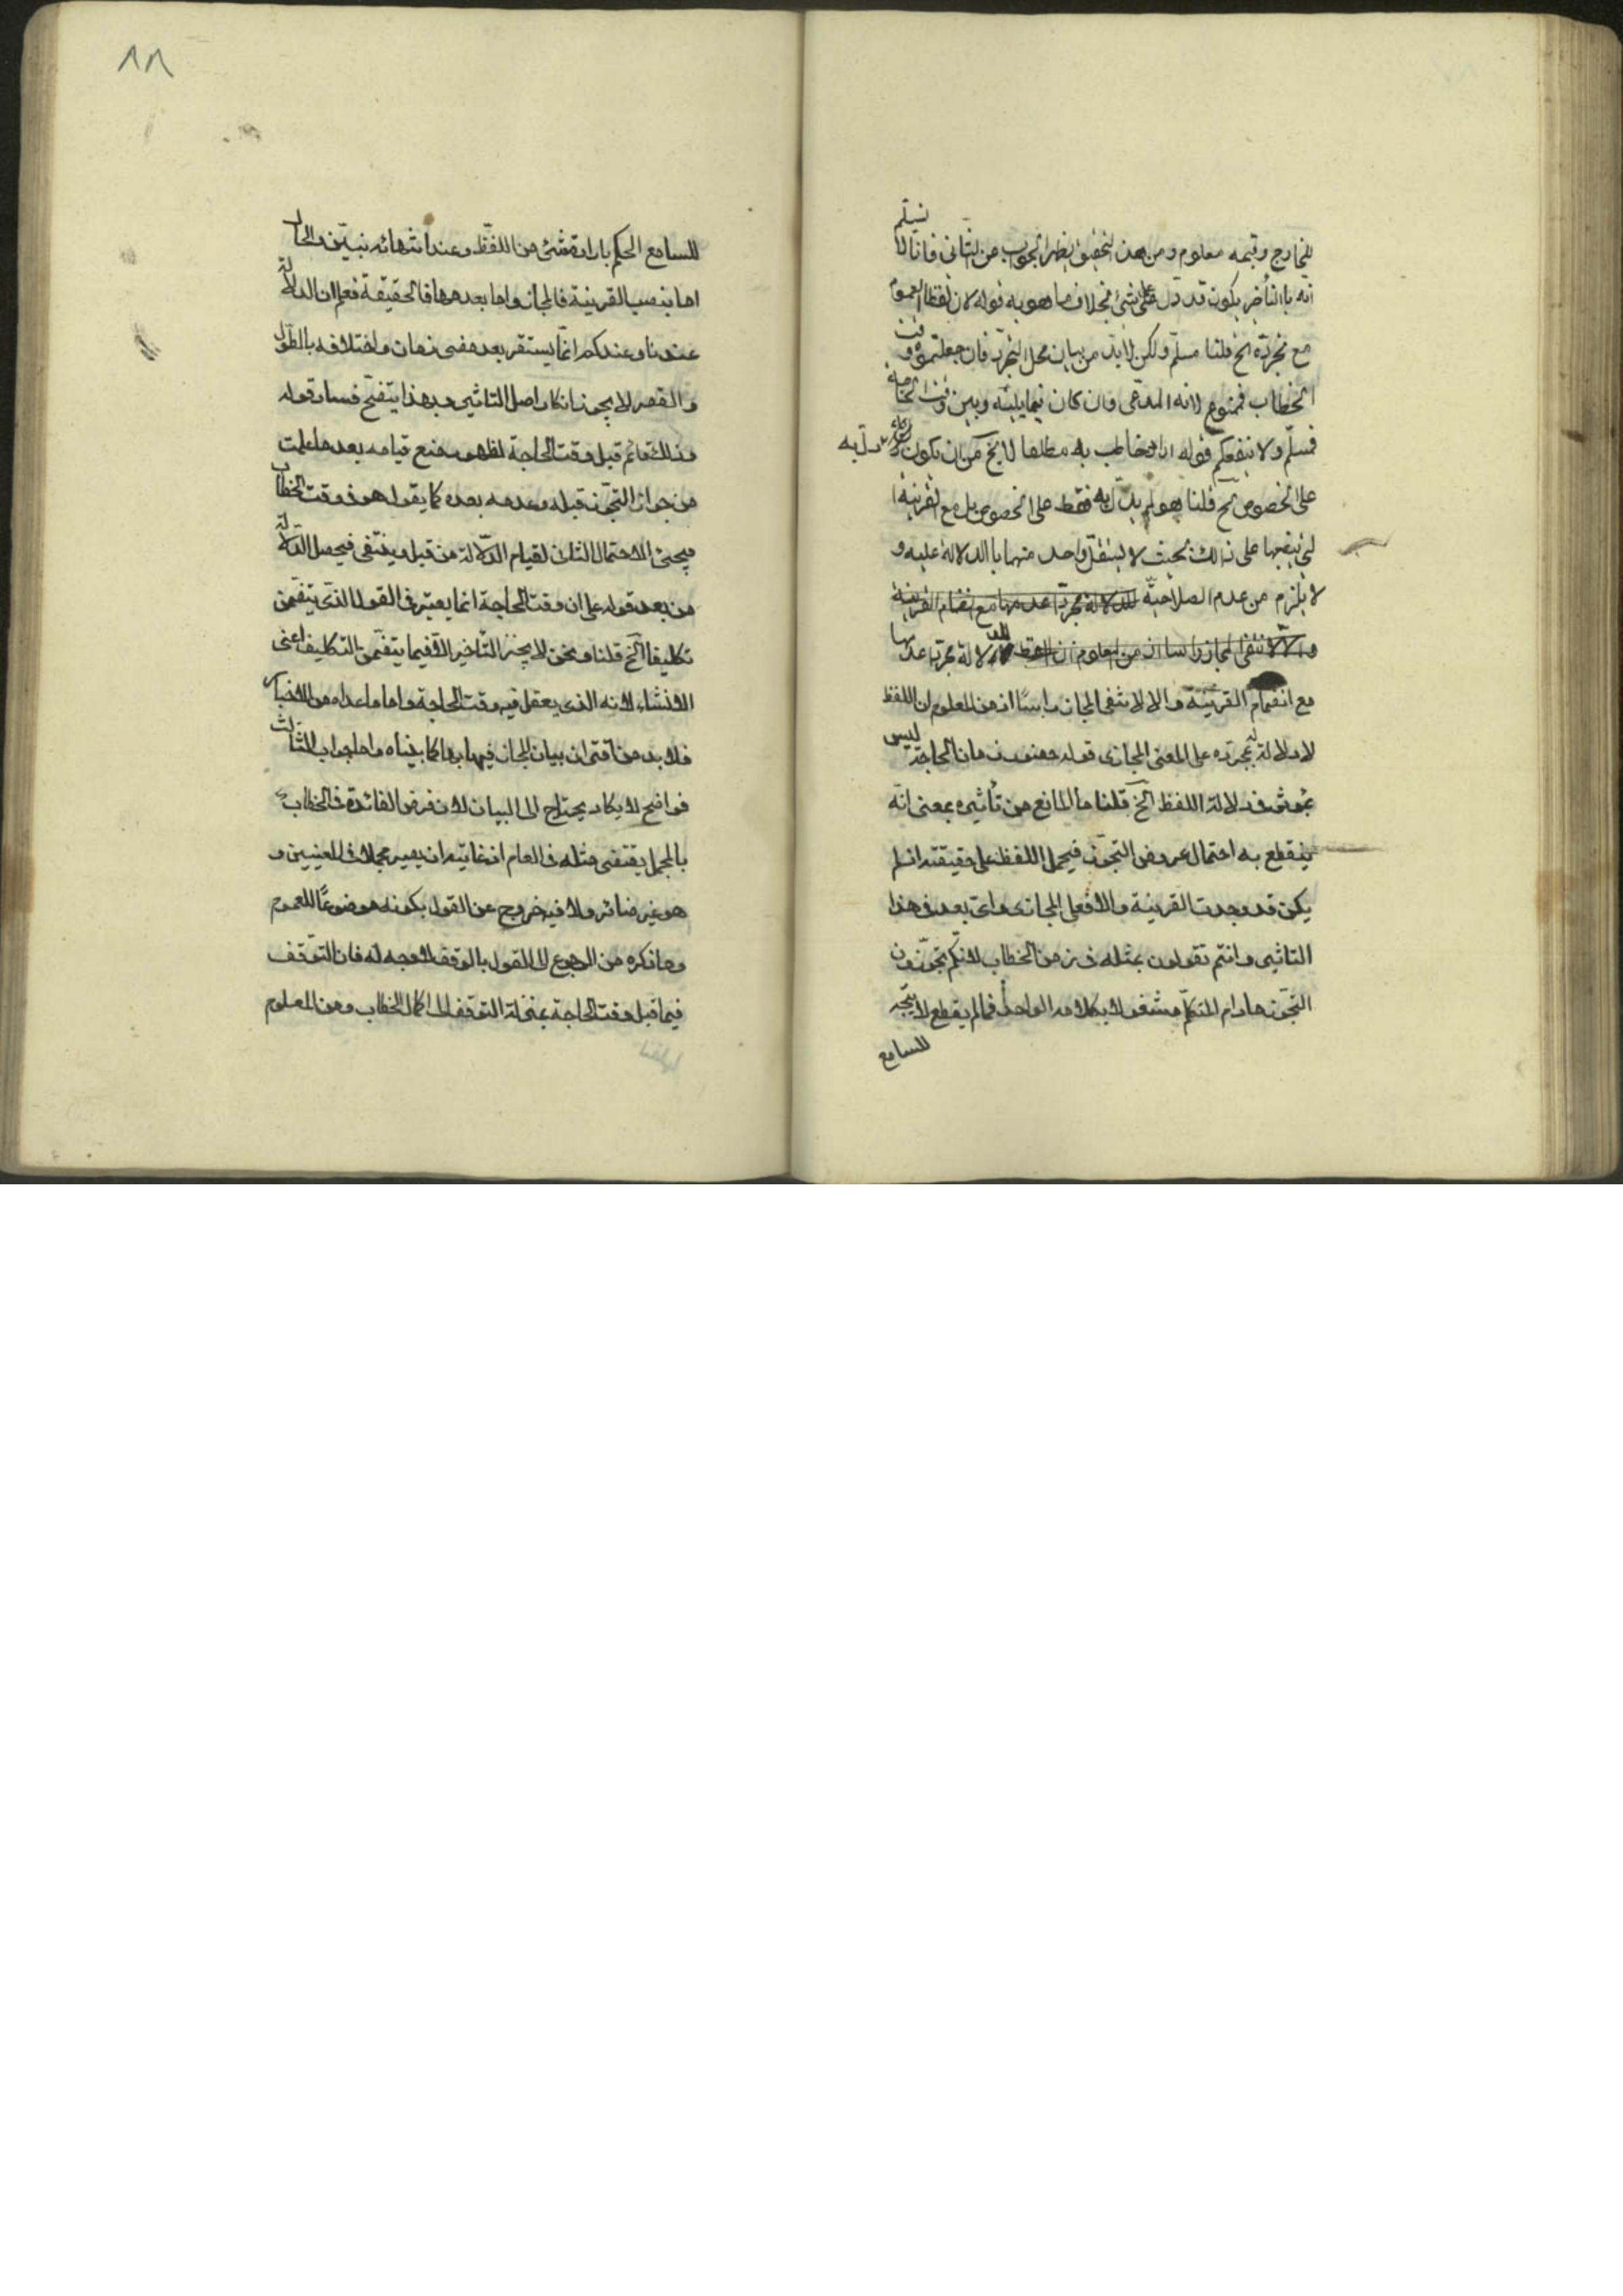 للخارج وقبحه معلوم ومن هذا التحقيق يظهر الجواب من الثاني فانا لا نسلم
انه بالتأخير يكون قد دل على شيء بخلاف ما هو به قوله لان لفظ العموم
مع تجرده الخ قلنا مسلم ولكن لا بد من بيان محل التجرد فان جعلتموه وقت
الخطاب فممنوع لانه المدعى وان كان فيما بينه وبين وقت الحاجة
فمسلم ولا ينفعكم قوله اذا خاطب به مطلقا لا يخ من ان يكون دل به
على الخصوص الخ قلنا هو لم يدل به فقط على الخصوص بل مع القرينة
التي ينصبها على ذلك بحيث لا يستقل واحد منهما بالدلالة عليه و
لا يلزم من عدم الصلاحية للدلالة مجردا عدمها مع انضمام القرينة
والا لانتفى المجاز راسا اذ من المعلوم ان اللفظ لا دلالة مجردا عدمها
مع انضمام القرينة والا لانتفى المجاز راسًا اذ من المعلوم ان اللفظ
لا دلالة له بمجرده على المعنى المجازي قوله حضور زمان الحاجة ليس
بمؤثر في دلالة اللفظ الخ قلنا ما المانع من تأثيره بمعنى انه
ينقطع به احتمال عروض التجوز فيحمل اللفظ على حقيقته ان لم
يكن قد وجدت القرينة والا فعلى المجازي واي بعد في هذا
التاثير وانتم تقولون بمثله في زمن الخطاب لانكم تجوزون
التجوز ما دام المتكلم مشغولا بكلامه الواحد فما لم ينقطع لا يتجه
للسامع
٨٨
للسامع الحكم بارادة شيء من اللفظ وعند انتهائه يتبين الحال
اما بنصب القرينة فالمجاز واما بعدمها فالحقيقة فعلم ان الدلالة
عندنا وعندكم انما يستقر بعد مضي زمان واختلافه بالطول
والقصر لا يجوز انكار اصل التاثير وبهذا يتضح فساد قوله
وذلك قائم قبل وقت الحاجة لظهور منع قيامه بعد ما علمت
من جواز التجوز قبله وعدمه بعده كما يقوله هو في وقت الخطاب
فيجئ الاحتمال الثاني لقيام الدلالة من قبل وينتفي فيحصل الدلالة
من بعد قوله على ان وقت الحاجة انما يعتبر في القول الذي يتضمن
تكليفا الخ قلنا ونحن لا نجيز التأخير الا فيما يتضمن التكليف اعني
الانشاء لانه الذي يعقل فيه وقت الحاجة واما ما عداه من الاخبار
فلا بد من اقتران بيان المجاز فيها بها كما بيناه واما جواب الثالث
فواضح لا يكاد يحتاج الى البيان لان فرض الفائدة في الخطاب
بالمجمل يقتضي مثله في العام اذ غايته ان يصير مجملا في المعنيين و
هو غير ضائر ولا فيه خروج عن القول بكونه موضوعًا للعموم
وما ذكره من الرجوع الى القول بالوقف لا وجه له فان التوقف
فيما قبل وقت الحاجة بمنزلة التوقف الى اكمال الخطاب ومن المعلوم